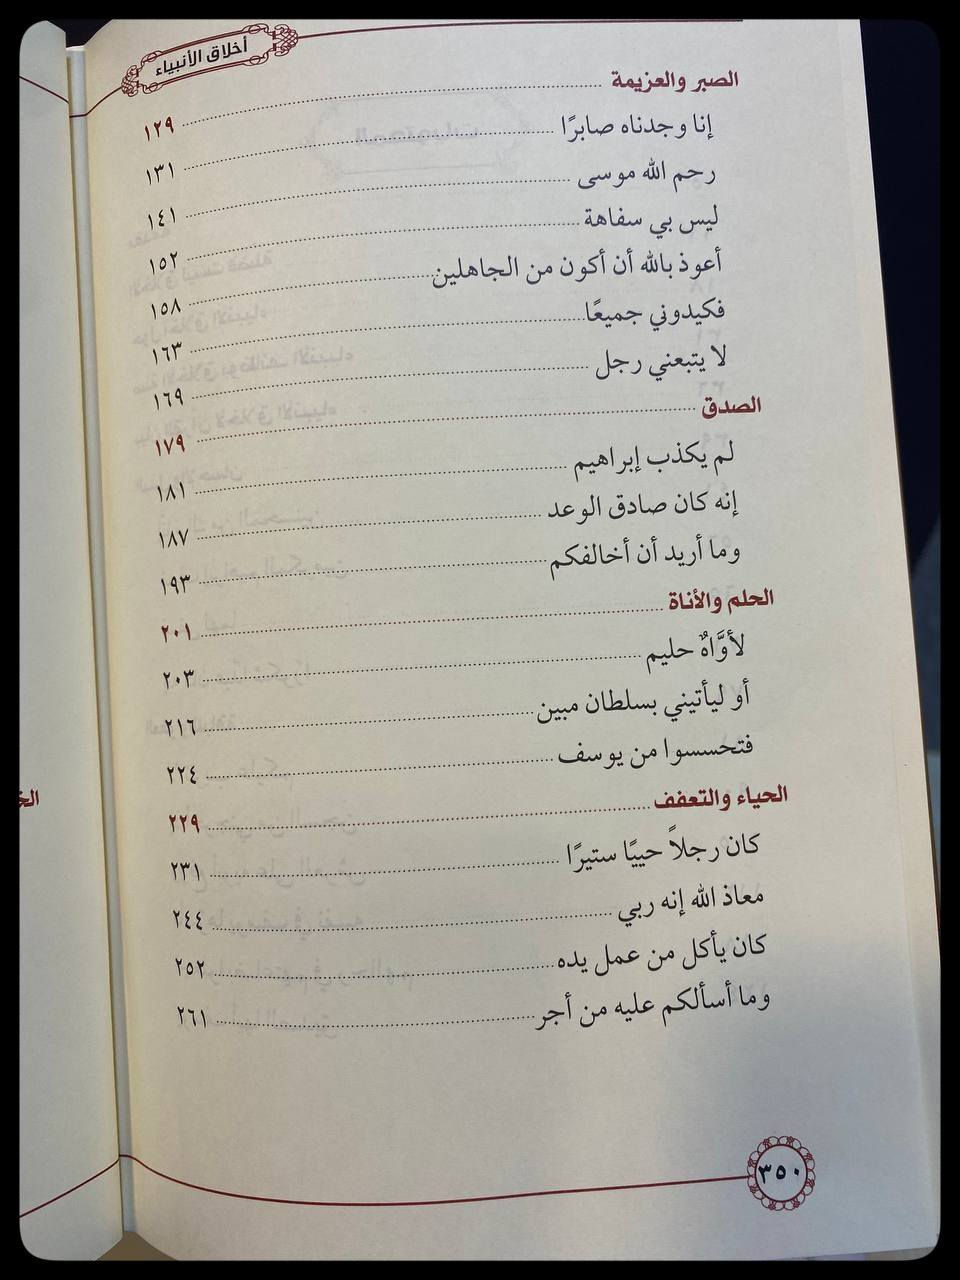 أخلاق الأنبياء
الصبر والعزيمة ........ ١٢٩
إنا وجدناه صابرًا ........ ١٣١
رحم الله موسى ........ ١٤١
ليس بي سفاهة ........ ١٥٢
أعوذ بالله أن أكون من الجاهلين ........ ١٥٨
فكيدوني جميعًا ........ ١٦٣
لا يتبعني رجل ........ ١٦٩
الصدق ........ ١٧٩
لم يكذب إبراهيم ........ ١٨١
إنه كان صادق الوعد ........ ١٨٧
وما أريد أن أخالفكم ........ ١٩٣
الحلم والأناة ........ ٢٠١
لأوَّاهٌ حليم ........ ٢٠٣
أو ليأتيني بسلطان مبين ........ ٢١٦
فتحسسوا من يوسف ........ ٢٢٤
الحياء والتعفف ........ ٢٢٩
كان رجلاً حييًا ستيرًا ........ ٢٣١
معاذ الله إنه ربي ........ ٢٤٤
كان يأكل من عمل يده ........ ٢٥٢
وما أسألكم عليه من أجر ........ ٢٦١
٣٥٠